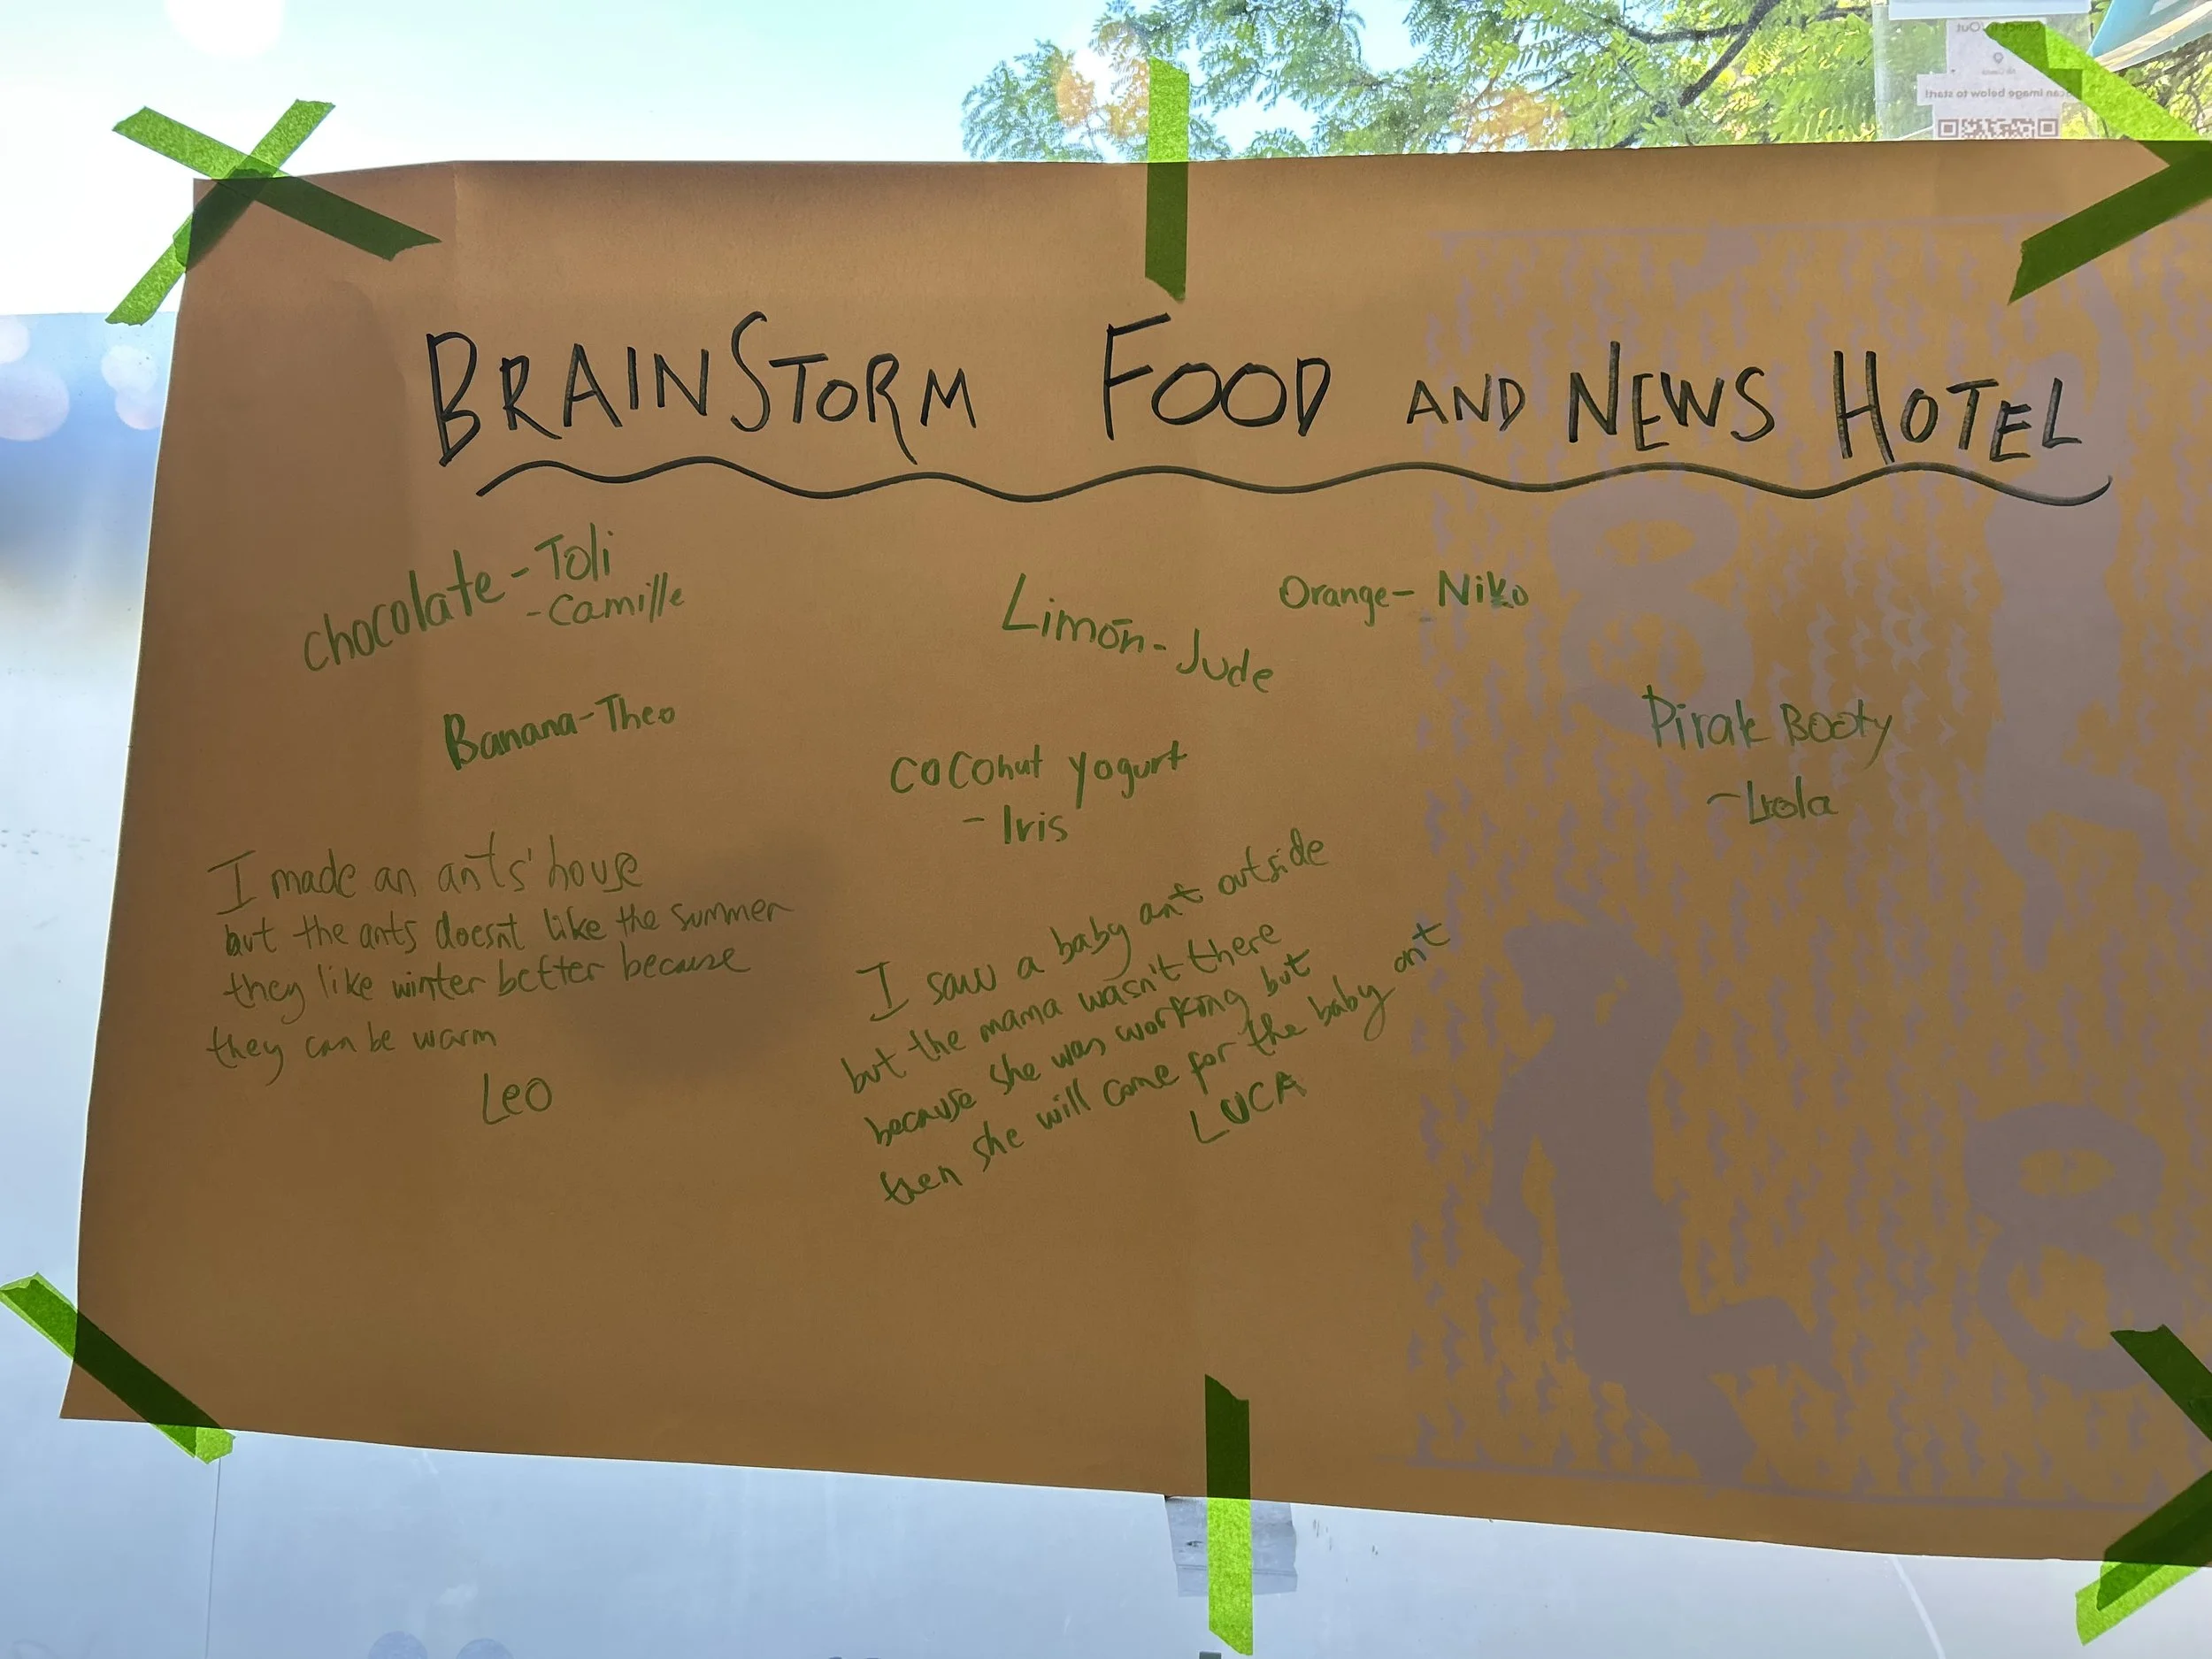 BRAINSTORM FOOD AND NEWS HOTEL
chocolate - Toli
- Camille
Limōn - Jude
Orange - Niko
Banana - Theo
Pirak Booty
- Lola
coconut yogurt
- Iris
I made an ants' house
but the ants doesnt like the summer
they like winter better because
they can be warm
Leo
I saw a baby ant outside
but the mama wasn't there
because she was working but
then she will come for the baby ant
LUCA
can image below to start!